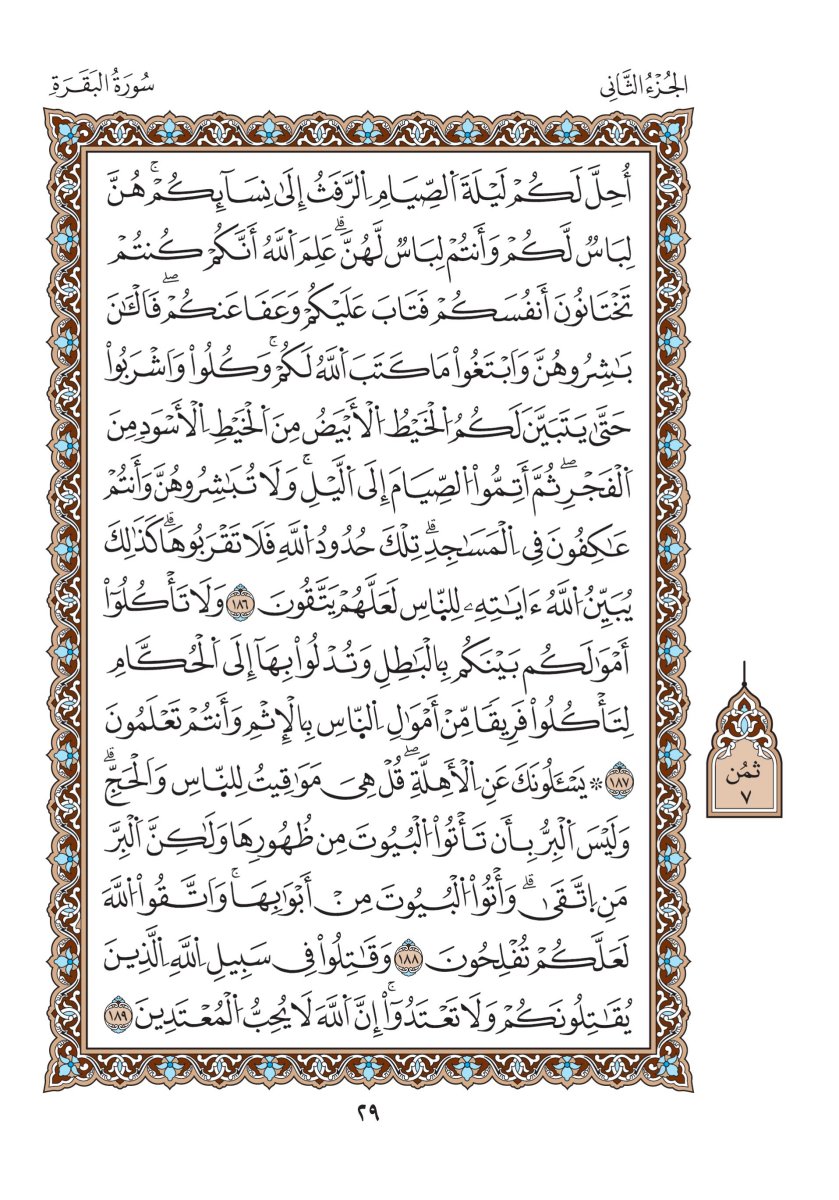 الجُزْءُ الثَّانِي
سُورَةُ البَقَرَةِ
أُحِلَّ لَكُمْ لَيْلَةَ اَلصِّيَامِ اِلرَّفَثُ إِلَىٰ نِسَآئِكُمْۚ هُنَّ
لِبَاسٌ لَّكُمْ وَأَنتُمْ لِبَاسٌ لَّهُنَّۗ عَلِمَ اَللَّهُ أَنَّكُمْ كُنتُمْ
تَخْتَانُونَ أَنفُسَكُمْ فَتَابَ عَلَيْكُمْ وَعَفَا عَنكُمْۖ فَالْـَٰٔنَ
بَٰشِرُوهُنَّ وَابْتَغُواْ مَا كَتَبَ اَللَّهُ لَكُمْۚ وَكُلُواْ وَاشْرَبُواْ
حَتَّىٰ يَتَبَيَّنَ لَكُمُ اُلْخَيْطُ اُلْأَبْيَضُ مِنَ اَلْخَيْطِ اِلْأَسْوَدِ مِنَ
اَلْفَجْرِۖ ثُمَّ أَتِمُّواْ اُلصِّيَامَ إِلَى اَلَّيْلِۚ وَلَا تُبَٰشِرُوهُنَّ وَأَنتُمْ
عَٰكِفُونَ فِي اِلْمَسَٰجِدِۗ تِلْكَ حُدُودُ اُللَّهِ فَلَا تَقْرَبُوهَاۗ كَذَٰلِكَ
يُبَيِّنُ اُللَّهُ ءَايَٰتِهِۦ لِلنَّاسِ لَعَلَّهُمْ يَتَّقُونَ ١٨٦ وَلَا تَأْكُلُوٓاْ
أَمْوَٰلَكُم بَيْنَكُم بِالْبَٰطِلِ وَتُدْلُواْ بِهَآ إِلَى اَلْحُكَّامِ
لِتَأْكُلُواْ فَرِيقًا مِّنْ أَمْوَٰلِ اِلنَّاسِ بِالْإِثْمِ وَأَنتُمْ تَعْلَمُونَ
١٨٧ ۞ يَسْـَٔلُونَكَ عَنِ اِلْأَهِلَّةِۖ قُلْ هِيَ مَوَٰقِيتُ لِلنَّاسِ وَالْحَجِّۗ
وَلَيْسَ اَلْبِرُّ بِأَن تَأْتُواْ اُلْبُيُوتَ مِن ظُهُورِهَا وَلَٰكِنَّ اَلْبِرَّ
مَنِ اِتَّقَىٰۗ وَأْتُواْ اُلْبُيُوتَ مِنْ أَبْوَٰبِهَاۚ وَاتَّقُواْ اُللَّهَ
لَعَلَّكُمْ تُفْلِحُونَ ١٨٨ وَقَٰتِلُواْ فِي سَبِيلِ اِللَّهِ اِلَّذِينَ
يُقَٰتِلُونَكُمْ وَلَا تَعْتَدُوٓاْۚ إِنَّ اَللَّهَ لَا يُحِبُّ اُلْمُعْتَدِينَ ١٨٩
ثُمُن
٧
٢٩